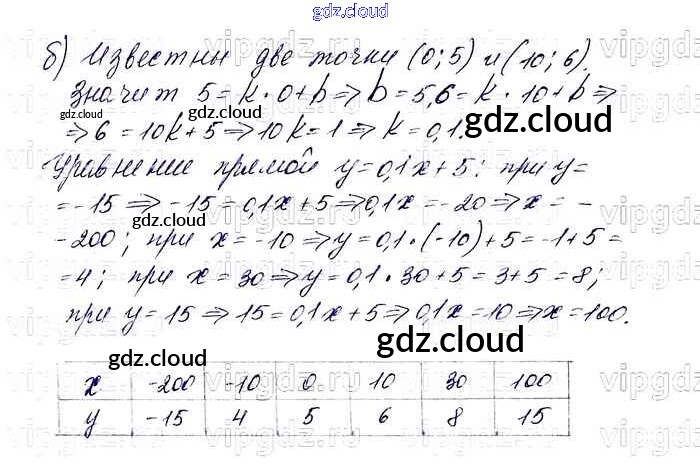 gdz.cloud
б) Известны две точки (0; 5) и (10; 6).
Значит 5 = k · 0 + b ⇒ b = 5, 6 = k · 10 + b ⇒
⇒ 6 = 10k + 5 ⇒ 10k = 1 ⇒ k = 0,1.
Уравнение прямой y = 0,1x + 5; при y =
= -15 ⇒ -15 = 0,1x + 5 ⇒ 0,1x = -20 ⇒ x = -
-200; при x = -10 ⇒ y = 0,1 · (-10) + 5 = -1 + 5 =
= 4; при x = 30 ⇒ y = 0,1 · 30 + 5 = 3 + 5 = 8;
при y = 15 ⇒ 15 = 0,1x + 5 ⇒ 0,1x = 10 ⇒ x = 100.
x -200 -10 0 10 30 100
y -15 4 5 6 8 15
gdz.cloud
gdz.cloud
gdz.cloud
gdz.cloud
gdz.cloud
gdz.cloud
gdz.cloud
gdz.cloud